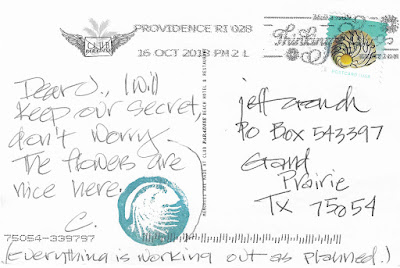 PROVIDENCE RI 028
16 OCT 2013 PM 2 L
Dear J., I will
keep our secret,
don't worry.
The flowers are
nice here.
C.
(Everything is working out as planned.)
75054-339797
PARADISE BEACH HOTEL & RESTAURANT
Thinking
POSTCARD
jeff
PO Box 543397
Grand
Prairie
TX 75054